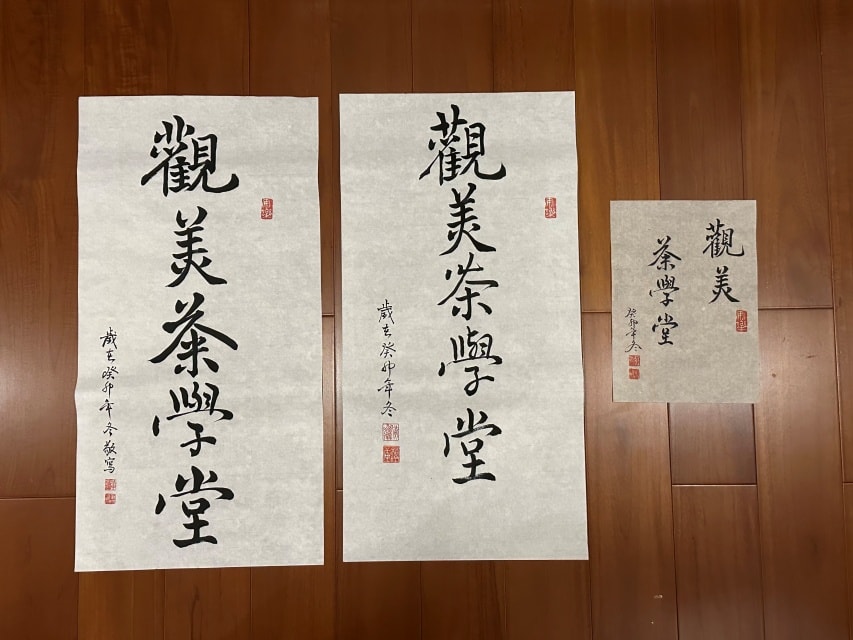 觀美茶學堂
歲在癸卯年冬敬寫
觀美茶學堂
歲在癸卯年冬
觀美
茶學堂
癸卯年冬